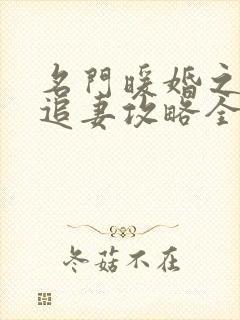 名門暖婚之
追妻攻略全
冬菇不在